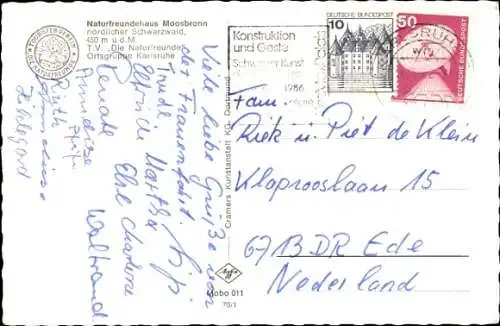 Naturfreundehaus Moosbronn
nördlicher Schwarzwald,
450 m ü.d.M.
T.V. „Die Naturfreunde"
Ortsgruppe Karlsruhe
Konstruktion
und Geste
Schweizer Kunst
1986
10
DEUTSCHE BUNDESPOST
50
DEUTSCHE BUNDESPOST
Viele liebe Grüße von
der Frauenfahrt.
Trudl
Martha
Renate Else
Anneliese
Ruth
Hildegard
Waltraud
Cramers Kunstanstalt KG, Dortmund
Mobo 011
Fam.
Riek u. Piet de Klein
Klaprooslaan 15
6713DR Ede
Nederland